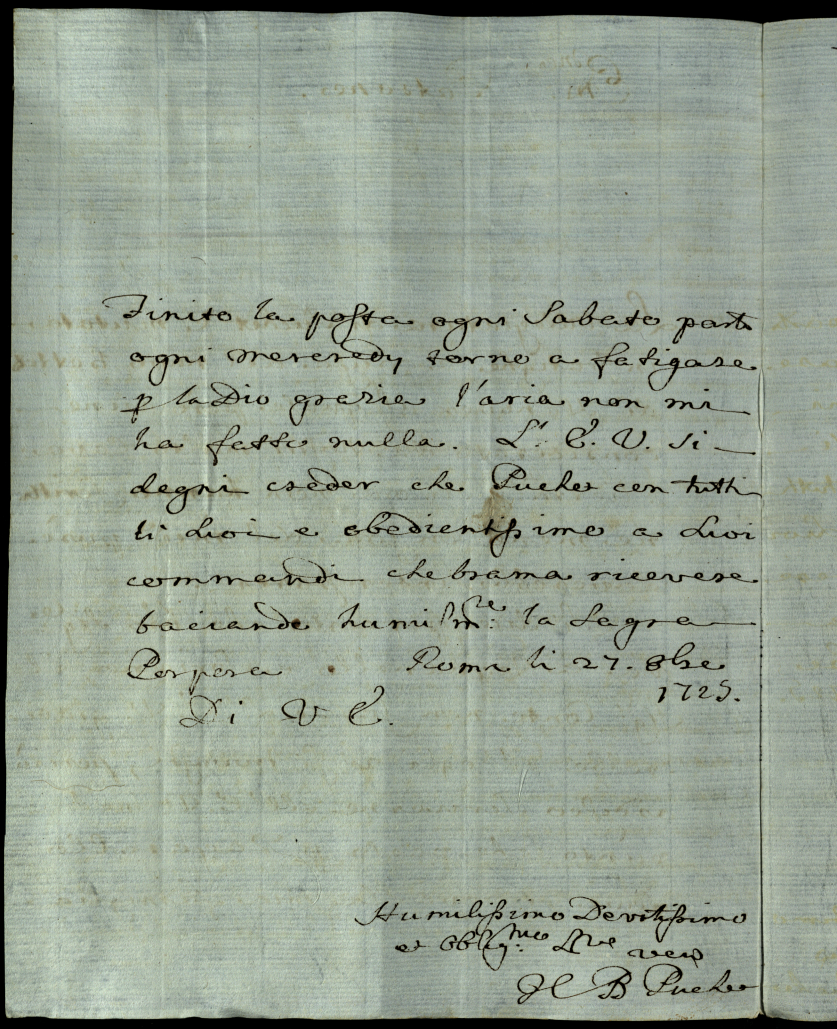 Finito la posta ogni Sabato parto
ogni mercredy torno a fatigare
p la Dio grazia l'aria non mi
ha fatto nulla. L' E. V. si
degni creder che Pucher con tutti
li suoi e obedientissimo a suoi
commandi che brama ricevere
baciando humilme: la Sagra
Porpora Roma li 27. 8bre
1725.
Di V E.
Humilissimo Devotissimo
et Obligmo: Sre vero
B Pucher